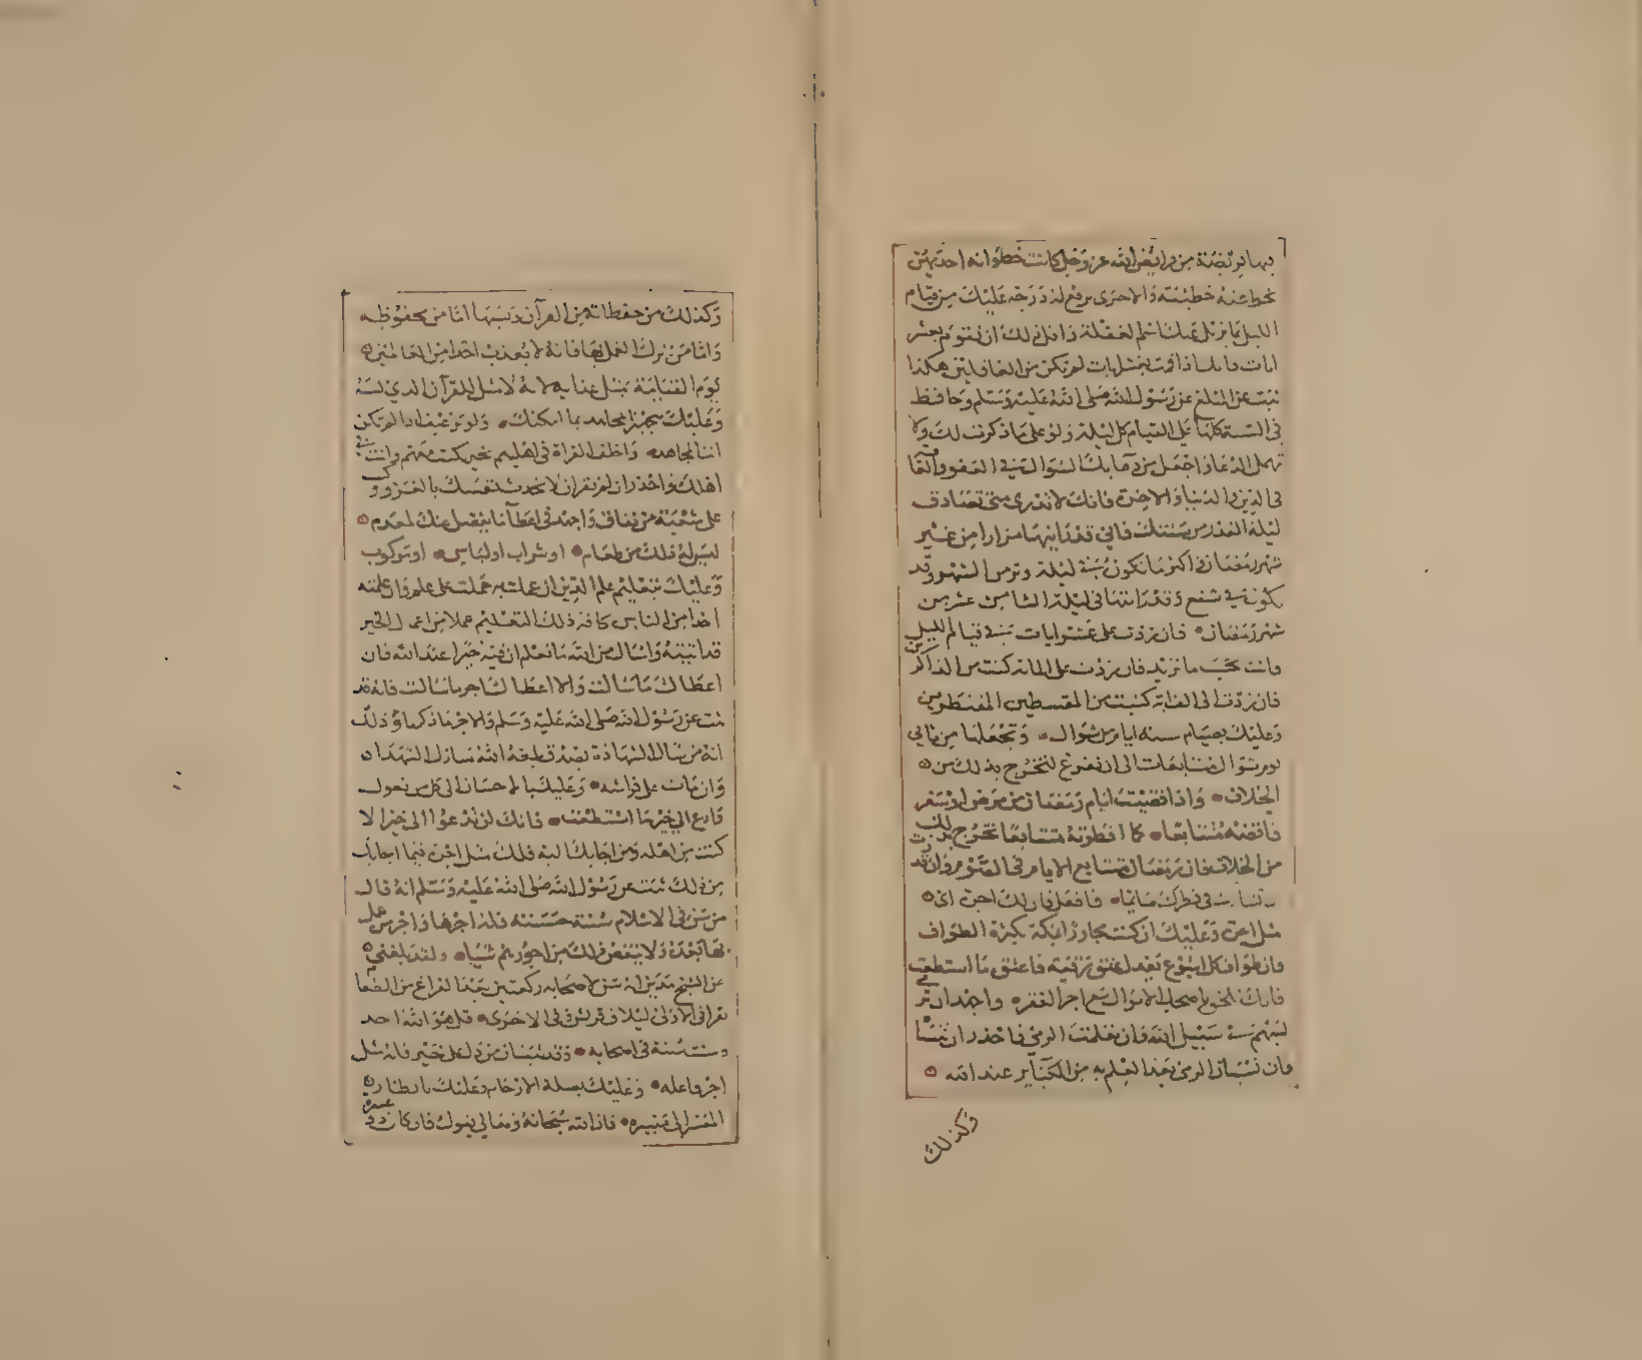 بها فريضة من فرائض الله عز وجل كانت خطواته احديهن
تحط عنه خطيئة والاخرى ترفع له درجة عليك من قيام
الليل ما يزيل عنك اسم الغفلة واقل ذلك ان تقوم بعشر
ايات فانك اذا قمت بعشر ايات لم تكن من الغافلين هكذا
ثبت عن المبلغ عن رسول الله صلى الله عليه وسلم وحافظ
في السنة كلها على القيام كل ليلة ولو على ما ذكرت لك ولا
تهمل الدعاء واجعل من دعائك السؤال في العفو والعافية
في الدين والدنيا والاخرة فانك لا تدري متى تصادف
ليلة القدر من سنتك فاني قد رايتها مرارا من غير
شهر رمضان في اكثر ما تكون في ليلة وتر من الشهر وقد
تكون في شفع وقد رايتها في ليلة الثامن عشر من
شهر رمضان فان زدت على عشر ايات في قيام الليل
وانت بحسب ما تزيد فان زدت على المائة كنت من الذاكرين
فان زدت الى الف اية كتبت من المقسطين
وعليك بصيام ستة ايام من شوال وتجعلها من ثاني
يوم شوال متتابعات الى ان تفرغ لتخرج بذلك من
الخلاف واذا قضيت ايام رمضان من مرض او سفر
فاقضه متتابعا كما افطرته متتابعا تخرج بذلك
من الخلاف فان رمضان متتابع الايام في الصوم وان قد
فافعل فان لك اجره اي
مثل اجره وعليك ان كنت مجاورا بمكة بكثرة الطواف
وان طواف كل اسبوع يعدل عتق رقبة فاعتق ما استطعت
فانك تلحق باصحاب الاموال مع اجر الفقر واجهد ان ترمي
بسهم في سبيل الله وان تعلمت الرمي فاحذر ان تنساه
فان نسيان الرمي بعد العلم به من الكبائر عند الله
وكذلك
وكذلك من حفظ اية من القرآن ونسيها اما من محفوظه
واما من ترك العمل بها فانه لا يعذب احد من العالمين
يوم القيامة بمثل عذابه لانه لا مثل للقرآن الذي نسيه
وعليك بتجهيز المجاهد بما امكنك ولو برغيف اذا لم تكن
انت المجاهد واخلف الغزاة في اهليهم بخير تكتب معهم وانت في
اهلك واحذر ان لم تغز ان لا تحدث نفسك بالغزو
على شعبة من نفاق واجهد في اعطاء ما يفضل عنك لمعدم
ليس له ذلك من طعام او شراب او لباس او مركوب
وعليك بتعليم علم الدين ان عملت به عملت على علم وان علمته
احدا من الناس كان ذلك التعليم عملا من اعمال الخير
قد اتيته واسال من الله ما تعلم ان فيه خيرا عند الله فان
اعطاك ما سالت والا اعطاك اجر ما سالت فانه قد
ثبت عن رسول الله صلى الله عليه وسلم ما ذكرناه وذلك
انه من سال الشهادة بصدق بلغه الله منازل الشهداء
وان مات على فراشه وعليك بالاحسان الى كل من تعول
وادع الى خير ما استطعت فانك لن تدعو الى خير الا
كنت من اهله ومن اجابك اليه فلك مثل اجره فيما اجابك
من ذلك ثبت عن رسول الله صلى الله عليه وسلم انه قال
من سن في الاسلام سنة حسنة فله اجرها واجر من عمل
بها بعده ولا ينقص ذلك من اجورهم شيئا ولقد بلغني
عن الشيخ ابي مدين انه سن لاصحابه ركعتين بعد الفراغ من الطعام
يقرا في الاولى لايلاف قريش وفي الاخرى قل هو الله احد
ومشت سنة في اصحابه وقد ثبت ان من دل على خير فله مثل
اجر فاعله وعليك بصلة الارحام وعليك بانظار
المعسر الى ميسرة فان الله سبحانه وتعالى يقول وان كان ذو عسرة